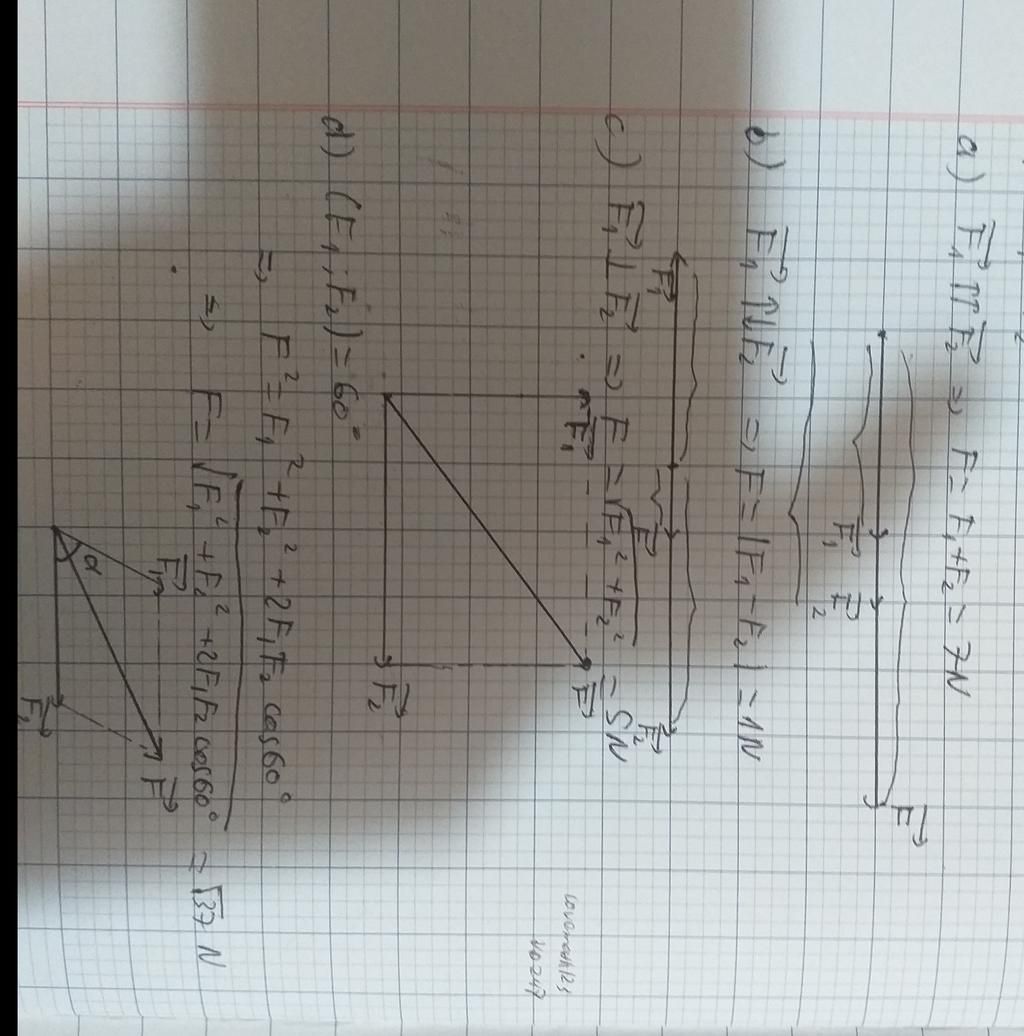 a) F₁⃗ ⇈ F₂⃗ => F = F₁ + F₂ = 7N
F₁⃗ F₂⃗ F⃗
b) F₁⃗ ↑↓ F₂⃗ => F = |F₁ - F₂| = 1N
F₁⃗ F⃗ F₂⃗
c) F₁⃗ ⊥ F₂⃗ => F = √(F₁² + F₂²) = 5N
F₁⃗ F⃗
F₂⃗
d) (F₁; F₂) = 60°
=> F² = F₁² + F₂² + 2F₁F₂ cos60°
=> F = √(F₁² + F₂² + 2F₁F₂ cos60°) = √37 N
F₁⃗ F⃗
α
F₂⃗